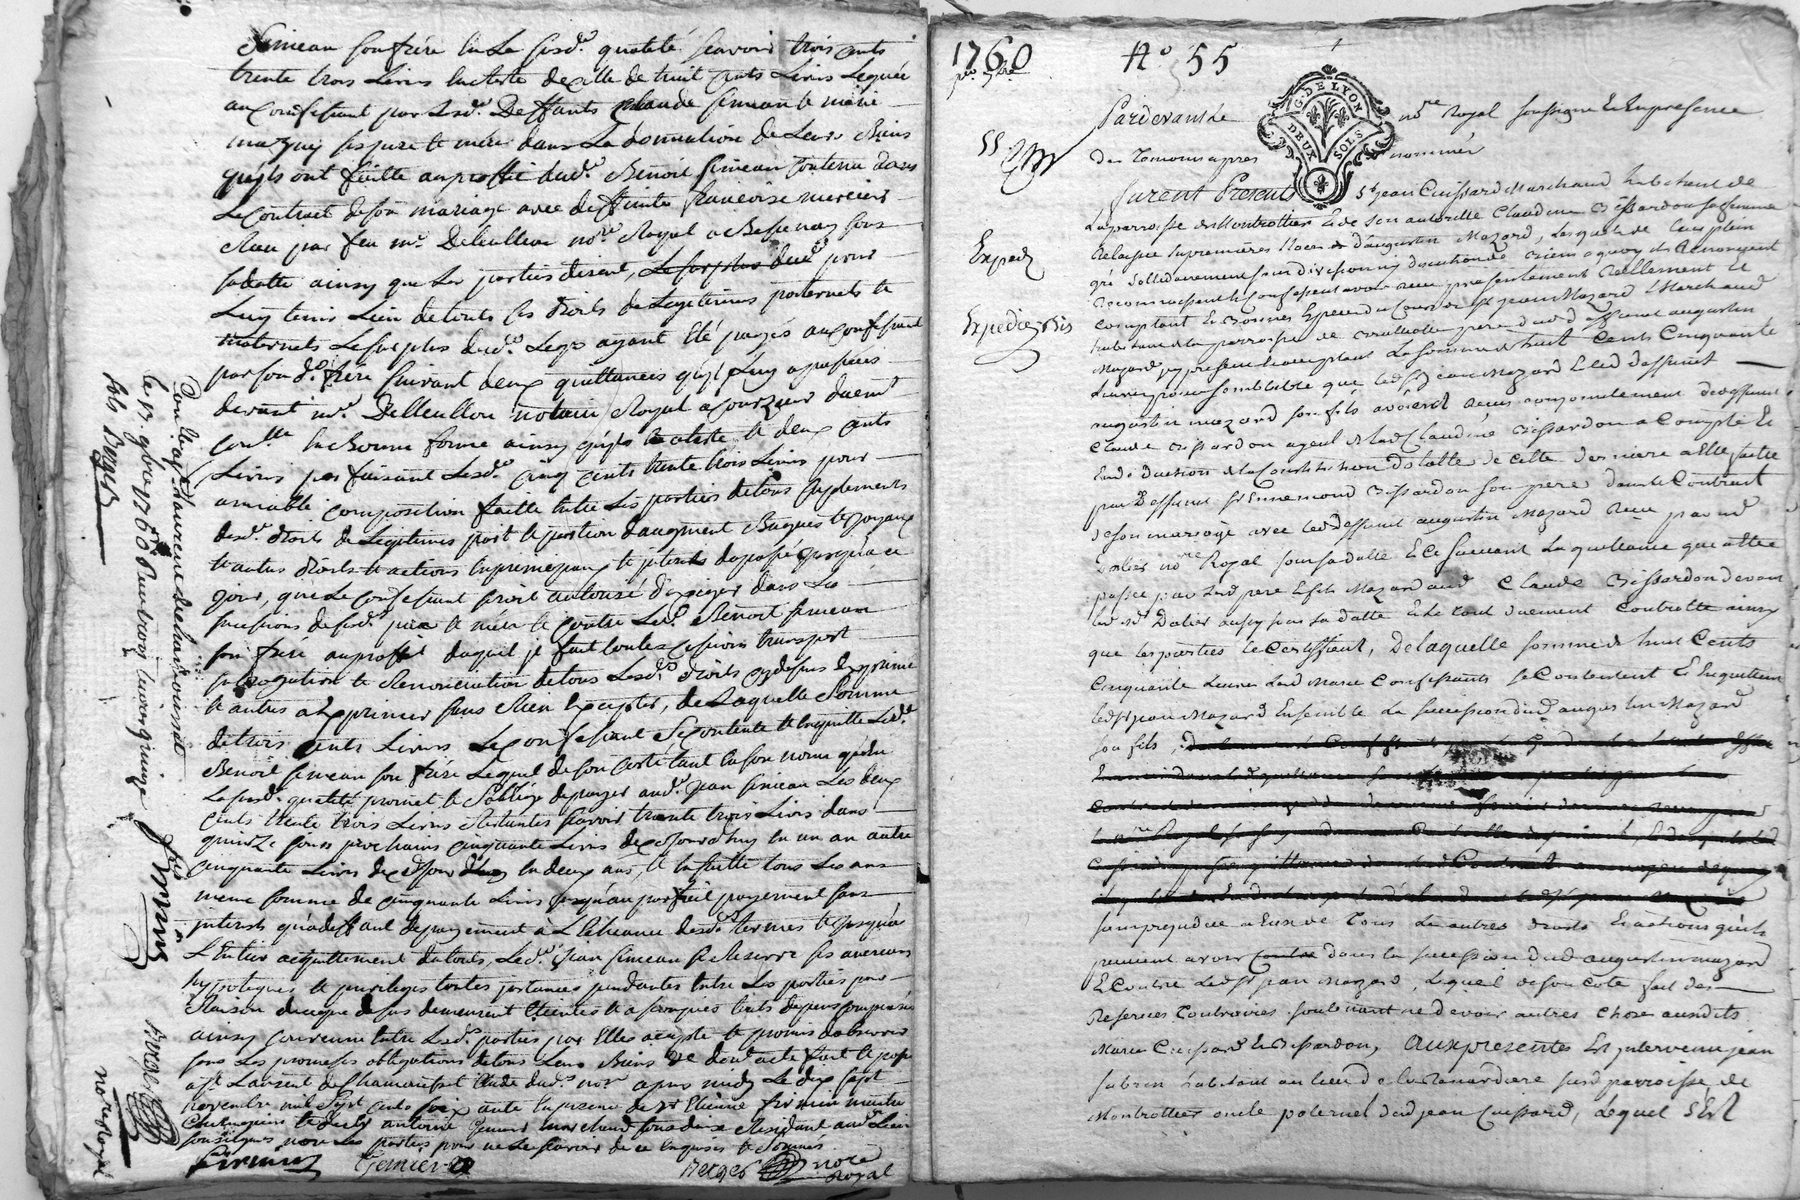 Simean son frère en La susd.e qualité scavoir trois cents
trente trois Livres du Legué
au confessant par Lesd. Deffants Claude Simean et marie
ses père et mère dans La donnation de Leurs Biens
qu'ils ont faitte au proffit dud. Benoit Simean contenu dans
Le Contract de son mariage avec deffunte francoise mercier
Reçu par feu m.e Delleullion no.re Royal a Bessenay sous
sa datte ainsy que Les parties disent, pour
Luy tenir Lieu de touts ses droits de Legitimes paternels et
maternels Le surplus dud. Legs ayant été payés au confessant
par son d. frère suivant deux quittances qu'il Luy a passées
devant m.e Delleullion notaire Royal
en Bonne forme ainsy qu'ils et deux cents
Livres faisant Lesd. cinq cents trente trois Livres pour
amiable composition faitte entre Les parties de tous supplements
desd. droits de Legitimes part et portion d'augment Bagues et joyaux
et autres droits et actions jusqu'à ce
jour, que Le confessant seroit autorisé d'exiger dans Les
successions desd. père et mère et contre Led. Benoit Simean
son frère au proffit duquel il fait toutes cessions transport
subrogation et Renonciation de tous Lesd. droits cy dessus exprimé
et autres a exprimer sans Rien excepter, de Laquelle Somme
de trois cents Livres Le confessant se contente et en quitte Led.
Benoit Simean son frère Lequel de son côté tant en son nom qu'en
La susd. qualité promet et s'oblige de payer aud. Jean Simean Les deux
cents trente trois Livres Restantes scavoir trente trois Livres dans
quinze jours prochains cinquante Livres de ce jourd'huy en un an autre
cinquante Livres de ce jourd'huy en deux ans, et ensuitte tous Les ans
meme somme de cinquante Livres jusqu'au parfait payement sans
interets qu'à deffaut de payement à L'echeance desd. termes et jusqu'à
L'Entier acquittement du tout, Led. Jean Simean se Reserve ses
hypoteques et privileges toutes instances pendantes entre Les parties pour
Raison de ce que dessus demeurent eteintes et
ainsy convenu entre Lesd. parties par Elles accepté et promis d'observer
sous Les promesses obligations de tous Leurs Biens dont acte fait et passé
a S.t Laurent de Chamousset Etude dud. no.re apres midy Le dix sept
novembre mil sept cents soix ante en presence de S.r Etienne firmin maitre
et de S.r antoine marchand Residant aud. Lieu
soussignés non Les parties pour ne Le scavoir de ce enquises et sommés
firmin
Berger no.re Royal
Con.lle a S.t Laurent de chamousset
le 17 9bre 1760 Recu trois livres quinze
sols Berger
firmin
Berger
no.re Royal
1760
N.o 55
Pardevant le no.re Royal soussigné et en presence
G. DE LYON
DEUX SOLS
des temoins apres nommés
furent Presents S.r jean Cuissard Marchand habitant de
La parroisse de Montrottier et de son autorité Claudine Bissardon sa femme
Relaissée en premieres Noces d'augustin Mazard, Lesquels de Leur plein
gré sollidairement sans division ny discution de Biens a quoy ils Renoncent
Reconnoissent et confessent avoir reçu presentement Reellement et
comptant en Bonnes Especes du Cours de S.r jean Mazard Marchand
habitant de la parroisse de pere dud. deffunt augustin
Mazard y present et acceptant La somme de huit Cents Cinquante
Livres pour semblable que led. S.r jean Mazard et led. deffunt
augustin mazard son fils avoient Reçus conjointement de deffunt
Claude Bissardon ayeul de lad. Claudine Bissardon a Compte et
en deduction de la Constitution dotalle de cette derniere a Elle faitte
par deffunt S.r Ennemond Bissardon son pere dans le Contract
de son mariage avec led. deffunt augustin Mazard Reçu par m.e
Dalier no.re Royal sous sa datte Et suivant La quittance que a été
passée par led. pere et fils Mazard aud. Claude Bissardon devant
led. M.e Dalier aussy sous sa datte Et le tout duement Controllé ainsy
que les parties le Certifient, De laquelle somme de huit Cents
Cinquante Livres Lesd. Mariés Confessants se Contentent Et En quittent
led. S.r jean Mazard Ensemble La succession dud. augustin Mazard
son fils,
sans prejudice a Eux de tous Les autres droits Et actions qu'ils
peuvent avoir dans la succession dud. augustin mazard
Et Contre Led. S.r jean Mazard, Lequel de son Coté fait des
Reserves Contraires soutenant ne devoir autres choses auxdits
Mariés Cuissard et Bissardon, Aux presentes Est intervenu jean
fabren habitant au lieu de la Renardiere susd. parroisse de
Montrottier oncle paternel dud. jean Cuissard, Lequel S'Est
Exped.
Expedié